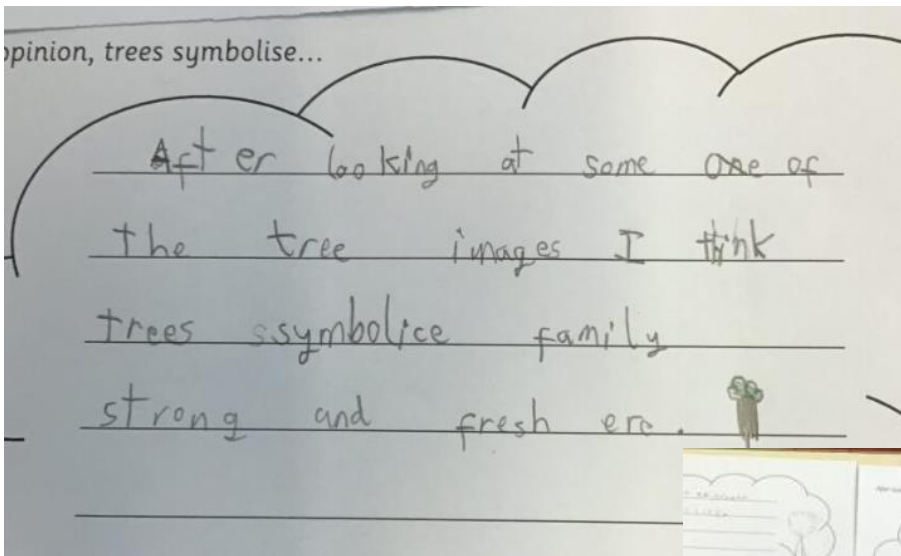 opinion, trees symbolise...
After looking at some one of
the tree images I think
trees ssymbolice family
strong and fresh ere.